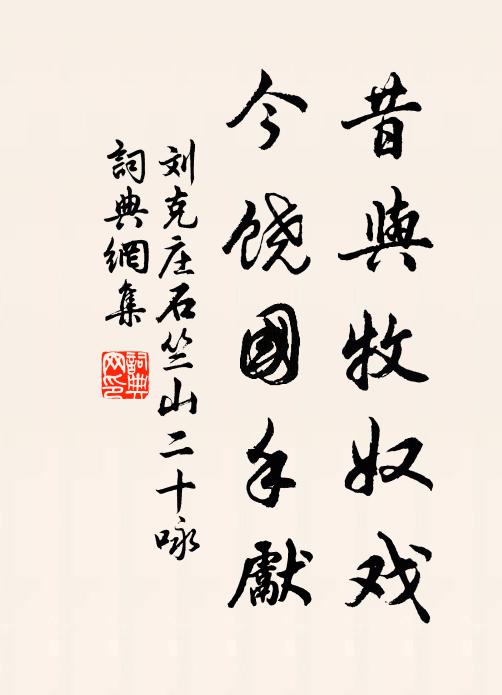 昔與牧奴戏
今饶國手獻
刘克庄石竺山二十咏
詞典網集
詞典网印